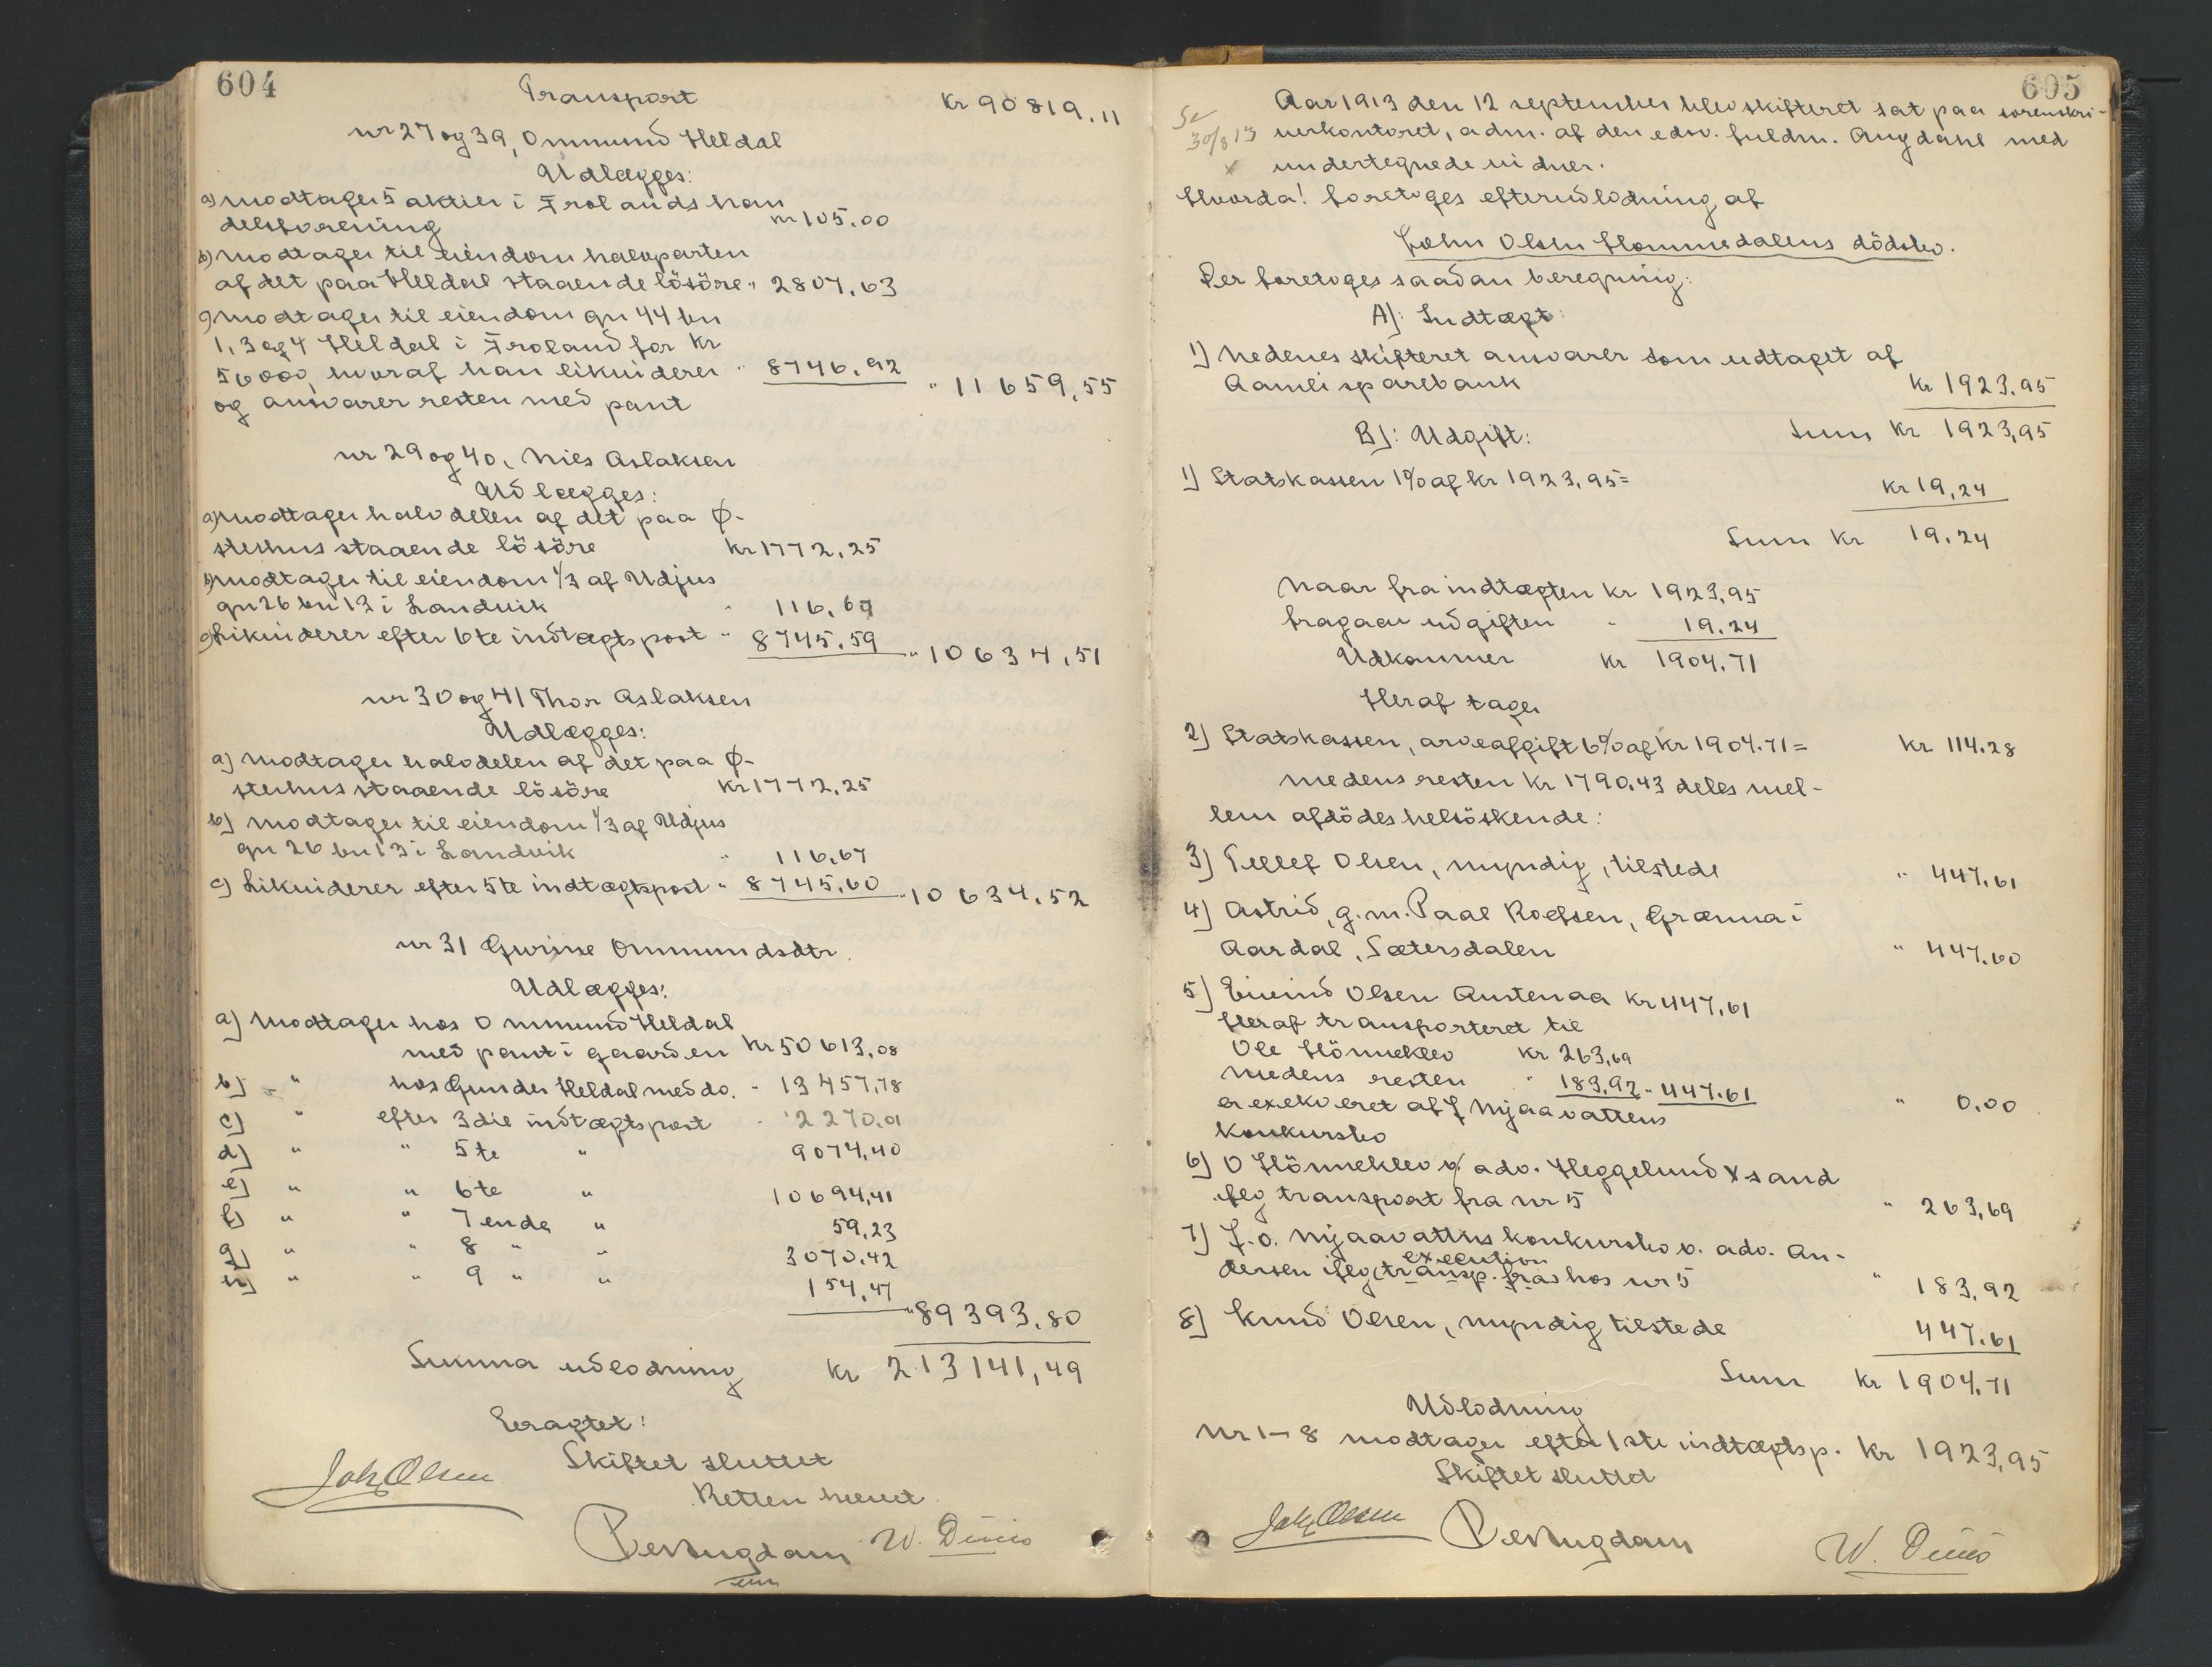 604
Transport kr 90819,11
nr 27 og 39, Ommund Heldal
Udlægges:
a) modtager 5 aktier i Frolands han
delsforening kr 105.00
b) modtager til eiendom halvparten
af det paa Heldal staaende lösöre " 2807,63
c) modtager til eiendom gn 44 bn
1, 3 og 4 Heldal i Froland for kr
56000, hvoraf han likviderer " 8746,92 " 11659,55
og ansvarer resten med pant
nr 29 og 40, Nies Aslaksen
Udlægges:
a) modtager halvdelen af det paa Ø-
sterhus staaende lösöre kr 1772,25
b) modtager til eiendom 1/3 af Udjus
gn 26 bn 13 i Landvik " 116,67
c) Likviderer efter 6te indtægtspost " 8745,59 " 10634,51
nr 30 og 41 Thor Aslaksen
Udlægges:
a) modtager halvdelen af det paa Ø-
sterhus staaende lösöre kr 1772,25
b) modtager til eiendom 1/3 af Udjus
gn 26 bn 13 i Landvik " 116,67
c) Likviderer efter 5te indtægtspost " 8745,60 " 10634,52
nr 31 Gurine Ommundsdtr.
Udlægges:
a) modtager hos Ommund Heldal
med pant i gaarden kr 50613,08
b) " hos Gunder Heldal med do. " 13457,78
c) " efter 3die indtægtspost " 2270,01
d) " " 5te " 9074,40
e) " " 6te " 10694,41
f) " " 7ende " 59,23
g) " " 8 " " 3070,42
h) " " 9 " " 154,47
" 89393,80
Summa udlodning kr 213141,49
Eragtet:
Skiftet sluttet
Retten hævet.
Joh. Olsen
Per Augdahl
W. Dimes
605
Se
30/8 13
x
Aar 1913 den 12 september blev skifteret sat paa sorenskri-
verkontoret, adm. af den edsv. fuldm. Augdahl med
undertegnede vidner.
Hvorda! foretoges efterudlodning af
John Olsen Hommedalens dödsbo.
Der foretoges saadan beregning:
A): Indtægt:
1) Nedenes skifteret ansvarer som udtaget af
Aamli sparebank kr 1923,95
Sum kr 1923,95
B): Udgift:
1) Statskassen 1% af kr 1923,95 = kr 19,24
Sum kr 19,24
Naar fra indtægten kr 1923,95
fragaar udgiften " 19.24
Udkommer kr 1904,71
Heraf tager
2) Statskassen, arveafgift 6% af kr 1904.71 = kr 114.28
medens resten kr 1790.43 deles mel-
lem afdödes helsöskende:
3) Tellef Olsen, myndig, tilstede " 447.61
4) Astrid, g.m. Paal Roefsen, Grænna i
Aardal, Sætersdalen " 447.60
5) Eivind Olsen Austenaa kr 447,61
Heraf transporteret til
Ole Hönneklev kr 263,69
medens resten " 183,92 " 447.61 " 0.00
er exekveret af J Mjaavattens
konkursbo
6) O Hönneklev v/ adv. Heggelund X sand
iflg transport fra nr 5 " 263,69
7) J. O. Mjaavattns konkursbo v. adv. An-
execution
dersen iflg transp. fra hos nr 5 " 183,92
8) Knud Olsen, myndig tilstede 447.61
Sum kr 1904.71
Udlodning
Nr 1-8 modtager efter 1ste indtægtsp. kr 1923,95
Skiftet sluttet
Joh. Olsen
Per Augdahl
W. Dimes